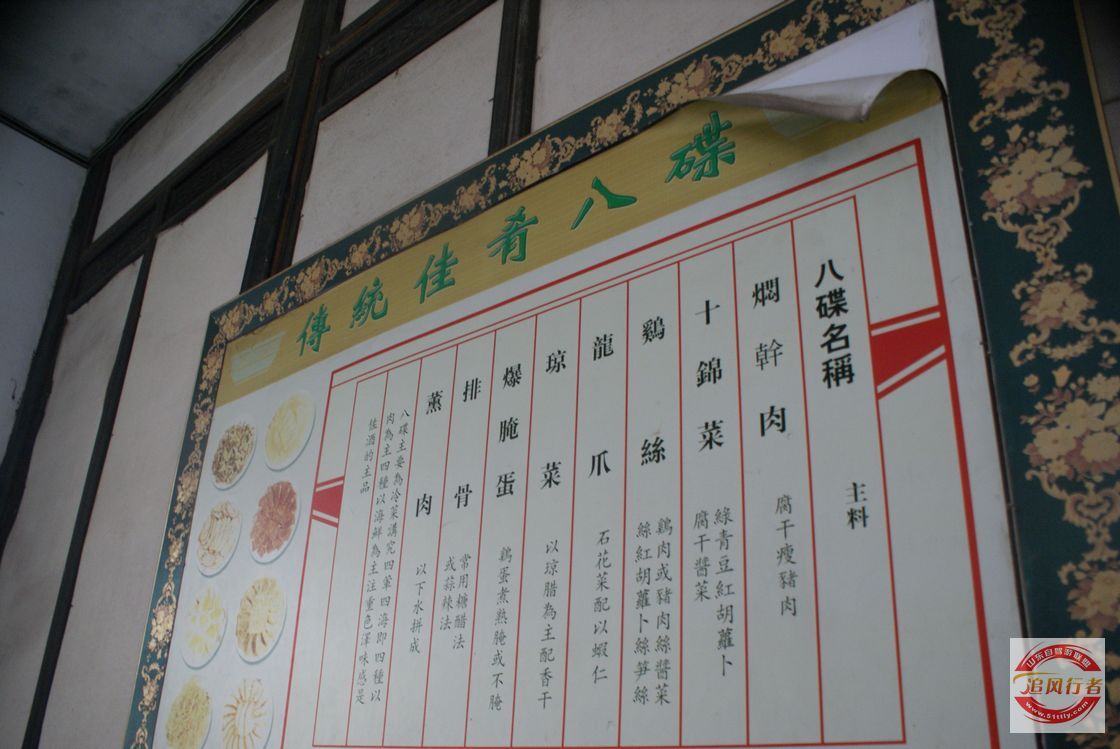 傳統佳肴八碟
八碟名稱 主料
燜幹肉 腐干瘦豬肉
十錦菜 綠青豆紅胡蘿卜
腐干醬菜
鷄絲 鷄肉或豬肉絲醬菜
絲紅胡蘿卜絲笋絲
龍爪 石花菜配以蝦仁
琼菜 以琼腊為主配香干
爆腌蛋 鷄蛋煮熟腌或不腌
排骨 常用糖醋法
或蒜辣法
薰肉 以下水拼成
八碟主要為冷菜講究四葷四海即四種以
肉為主四種以海鮮為主注重色澤味感是
佐酒的主品
山东自驾游联盟
追风行者
www.51ttly.com